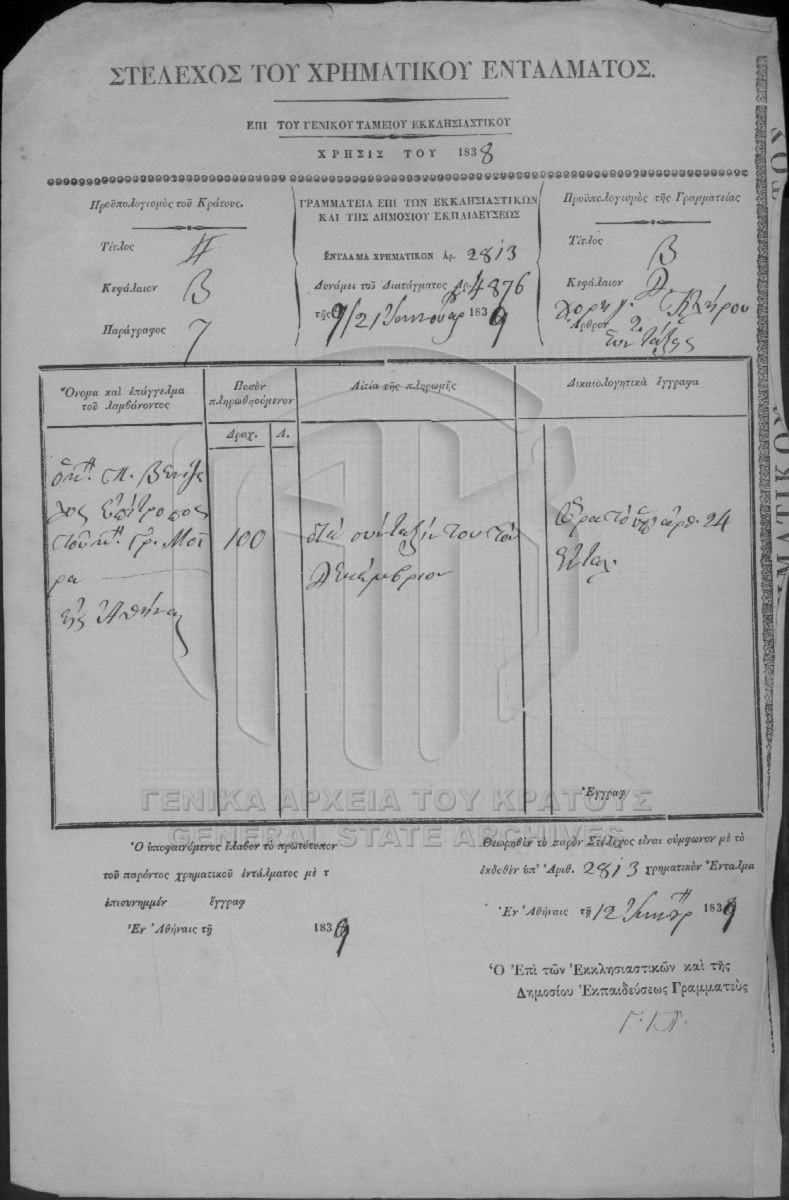 ΣΤΕΛΕΧΟΣ ΤΟΥ ΧΡΗΜΑΤΙΚΟΥ ΕΝΤΑΛΜΑΤΟΣ.
ΕΠΙ ΤΟΥ ΓΕΝΙΚΟΥ ΤΑΜΕΙΟΥ ΕΚΚΛΗΣΙΑΣΤΙΚΟΥ
ΧΡΗΣΙΣ ΤΟΥ 1838
Προϋπολογισμὸς τοῦ Κράτους.
Τίτλος
Κεφάλαιον Β
Παράγραφος 7
ΓΡΑΜΜΑΤΕΙΑ ΕΠΙ ΤΩΝ ΕΚΚΛΗΣΙΑΣΤΙΚΩΝ
ΚΑΙ ΤΗΣ ΔΗΜΟΣΙΟΥ ΕΚΠΑΙΔΕΥΣΕΩΣ
ΕΝΤΑΛΜΑ ΧΡΗΜΑΤΙΚΟΝ Ἀρ. 2813
Δυνάμει τοῦ Διατάγματος Ἀρ. 4876
τῆς 9/21 Ἰανουαρ 1839
Προϋπολογισμὸς τῆς Γραμματείας
Τίτλος Β
Κεφάλαιον
Κλήρου
Ἄρθρον 2
Συντάξεις
Ὄνομα καὶ ἐπάγγελμα
τοῦ λαμβάνοντος
Ποσὸν
πληρωθησόμενον
Δραχ. Λ.
Αἰτία τῆς πληρωμῆς
Δικαιολογητικὰ ἔγγραφα
Βενιζέ
λος Ἐπίτροπος
τοῦ Γρ. Μοί
ρα
εἰς Ἀθήνας
100
διὰ σύνταξίν του τὸν
Δεκέμβριον
Ὅρα τὸ ὑπ' ἀρθ. 24
Ἐνταλ.
Ἔγγραφ
ΓΕΝΙΚΑ ΑΡΧΕΙΑ ΤΟΥ ΚΡΑΤΟΥΣ
GENERAL STATE ARCHIVES
Ὁ ὑποφαινόμενος ἔλαβον τὸ πρωτότυπον
τοῦ παρόντος χρηματικοῦ ἐντάλματος μὲ τ
ἐπισυνημμέν ἔγγραφ
Ἐν Ἀθήναις τῇ 1839
Θεωρηθὲν τὸ παρὸν Στέλεχος εἶναι σύμφωνον μὲ τὸ
ἐκδοθὲν ὑπ' Ἀριθ. 2813 χρηματικὸν Ἔνταλμα
Ἐν Ἀθήναις τῇ 12 1839
Ὁ Ἐπὶ τῶν Ἐκκλησιαστικῶν καὶ τῆς
Δημοσίου Ἐκπαιδεύσεως Γραμματεὺς